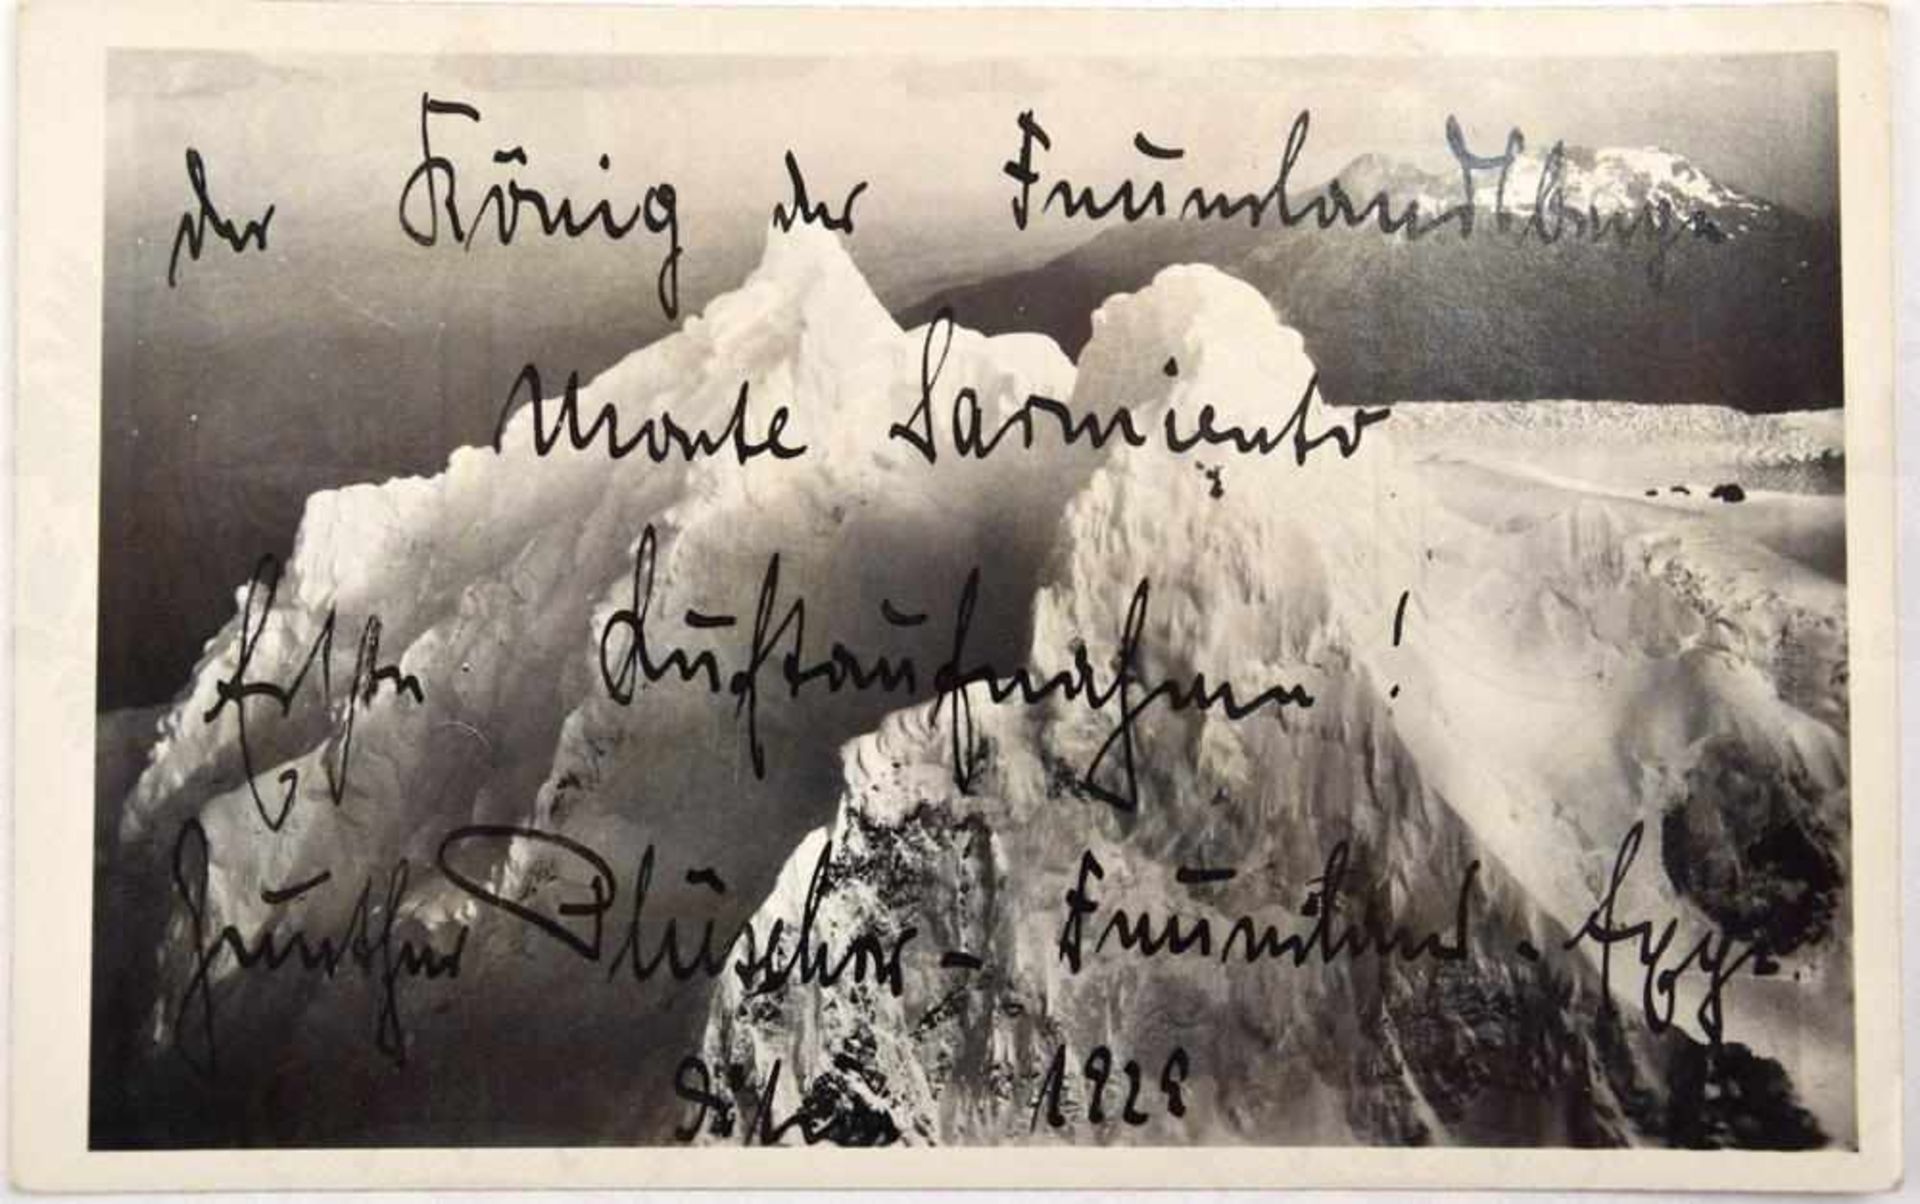 der König der Feuerlandberge
Monte Sarmiento
Erste Luftaufnahme!
Gunther Plüschow - Feuerland. Exp.
1929